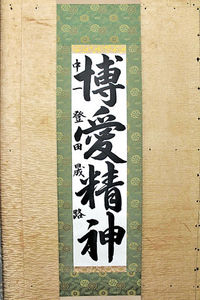 博愛精神
中一 登田晟路